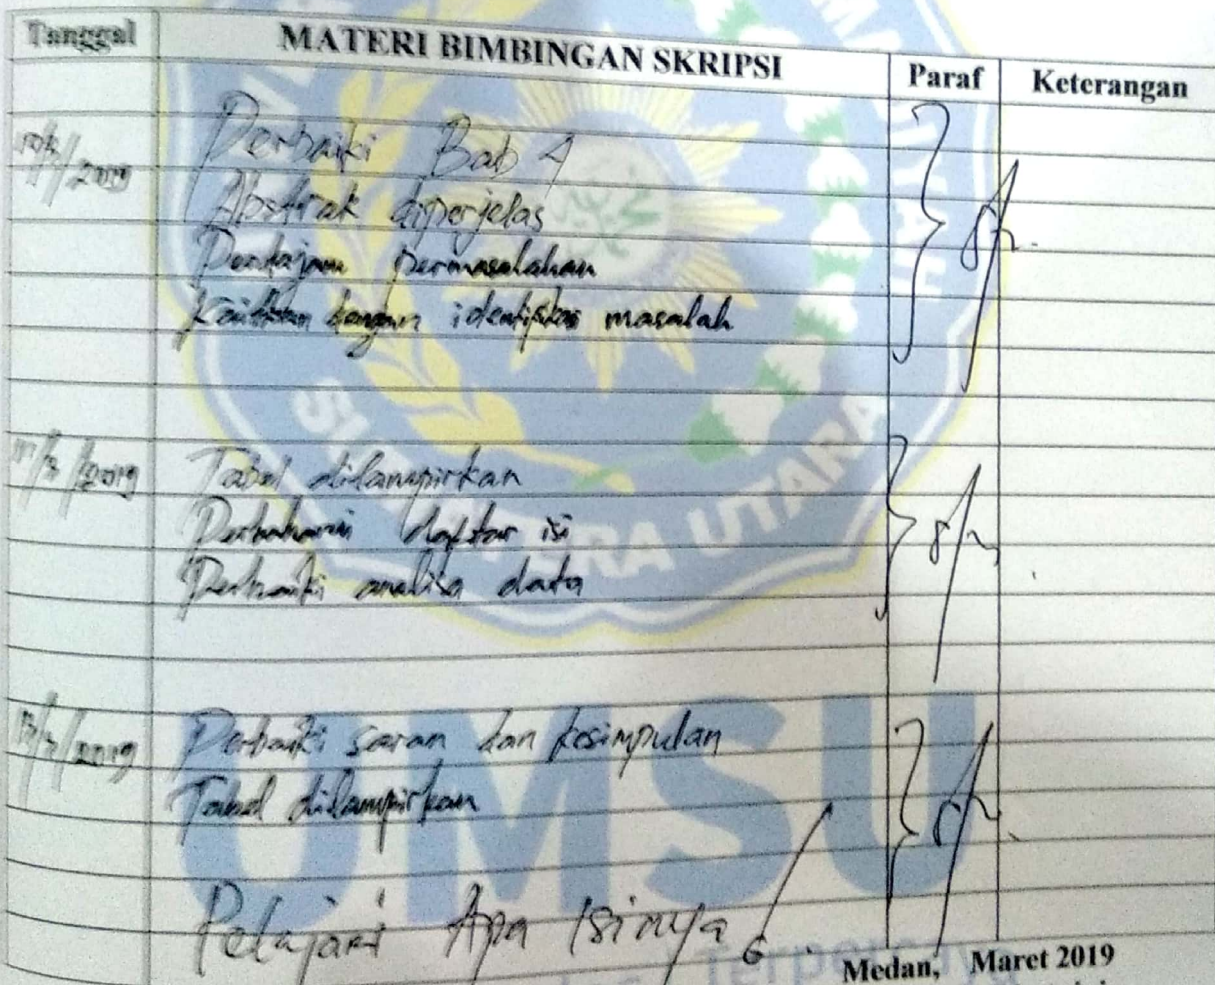 Tanggal MATERI BIMBINGAN SKRIPSI Paraf Keterangan
Perbaiki Bab 4
/2019
Abstrak diperjelas
Pertajam permasalahan
Kaitkan dengan identifikasi masalah
/3/2019 Tabel dilampirkan
Perbaharui daftar isi
Perbaiki analisa data
/3/2019 Perbaiki saran dan kesimpulan
Tabel dilampirkan
Pelajari Apa Isinya
Medan, Maret 2019
SUMATERA UTARA
UMSU